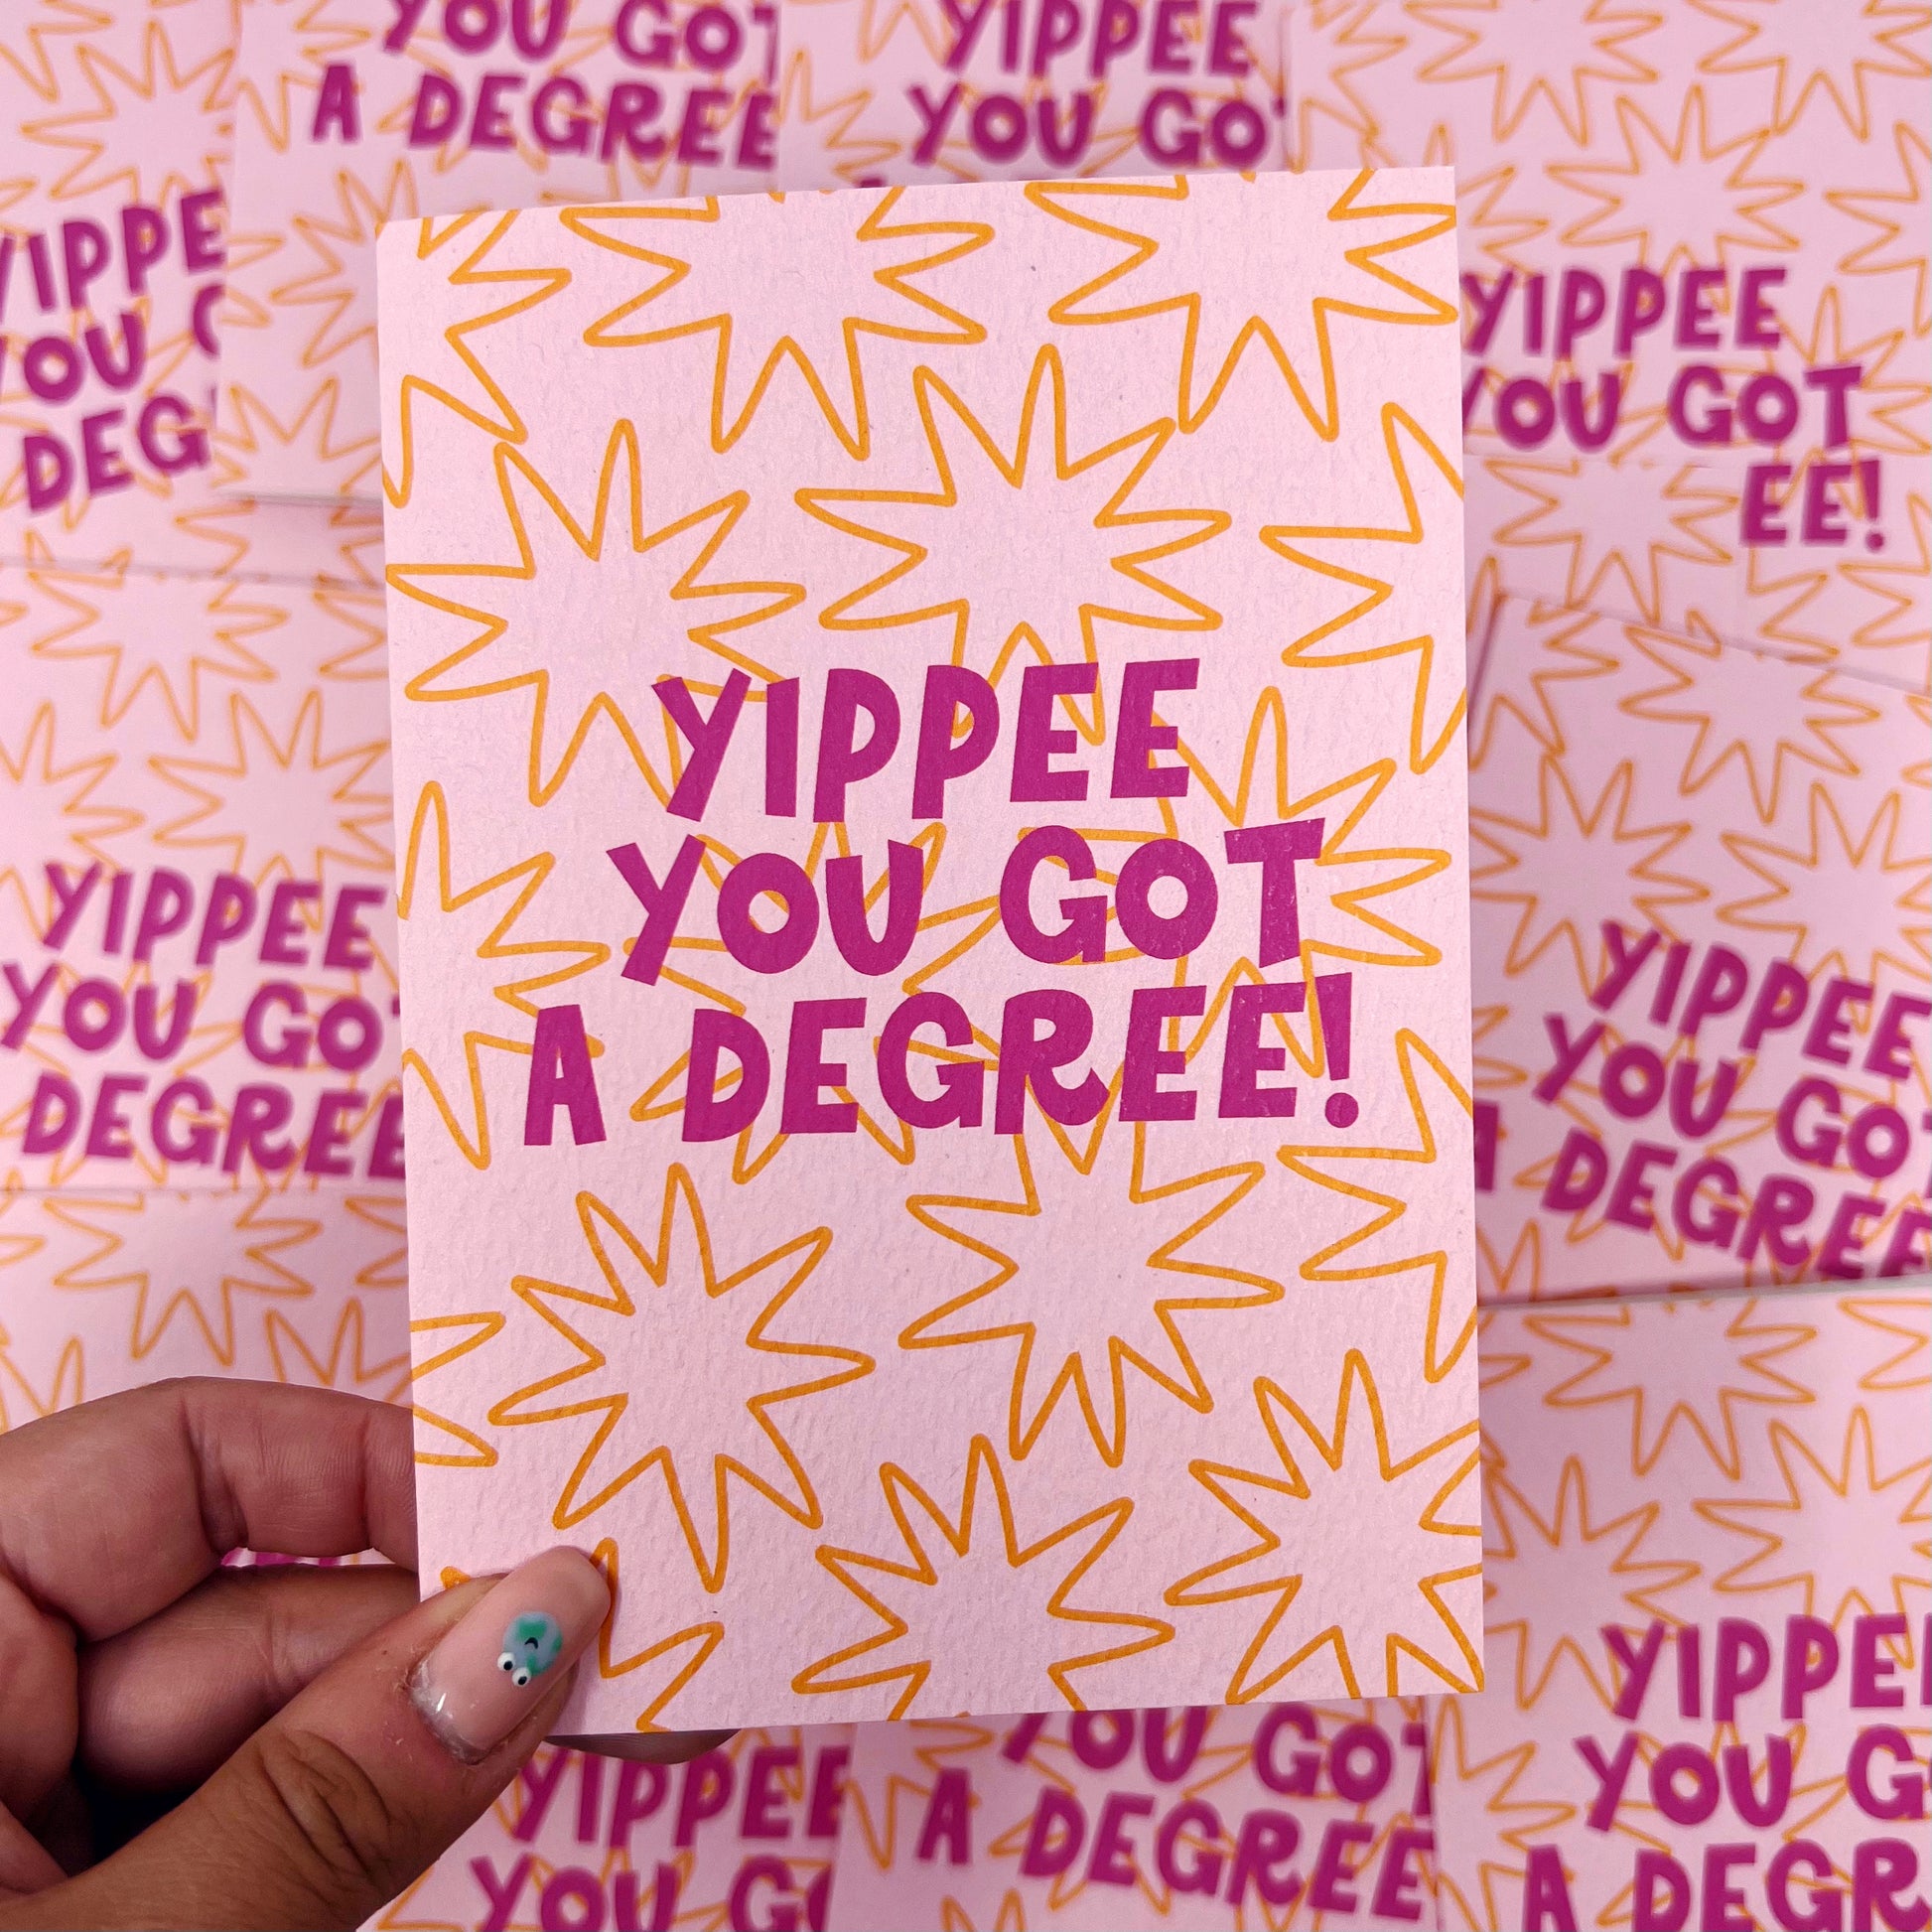 YOU GOT
A DEGREE
YIPPEE
YOU GOT
YIPPEE
YOU
DEG
YIPPEE
YOU GOT
EE!
YIPPEE
YOU GOT
A DEGREE!
YIPPEE
YOU GOT
DEGREE
YIPPEE
YOU GOT
A DEGREE
YIPPEE
YOU G
A DEGR
YIPPEE
YOU GO
YOU GOT
A DEGREE